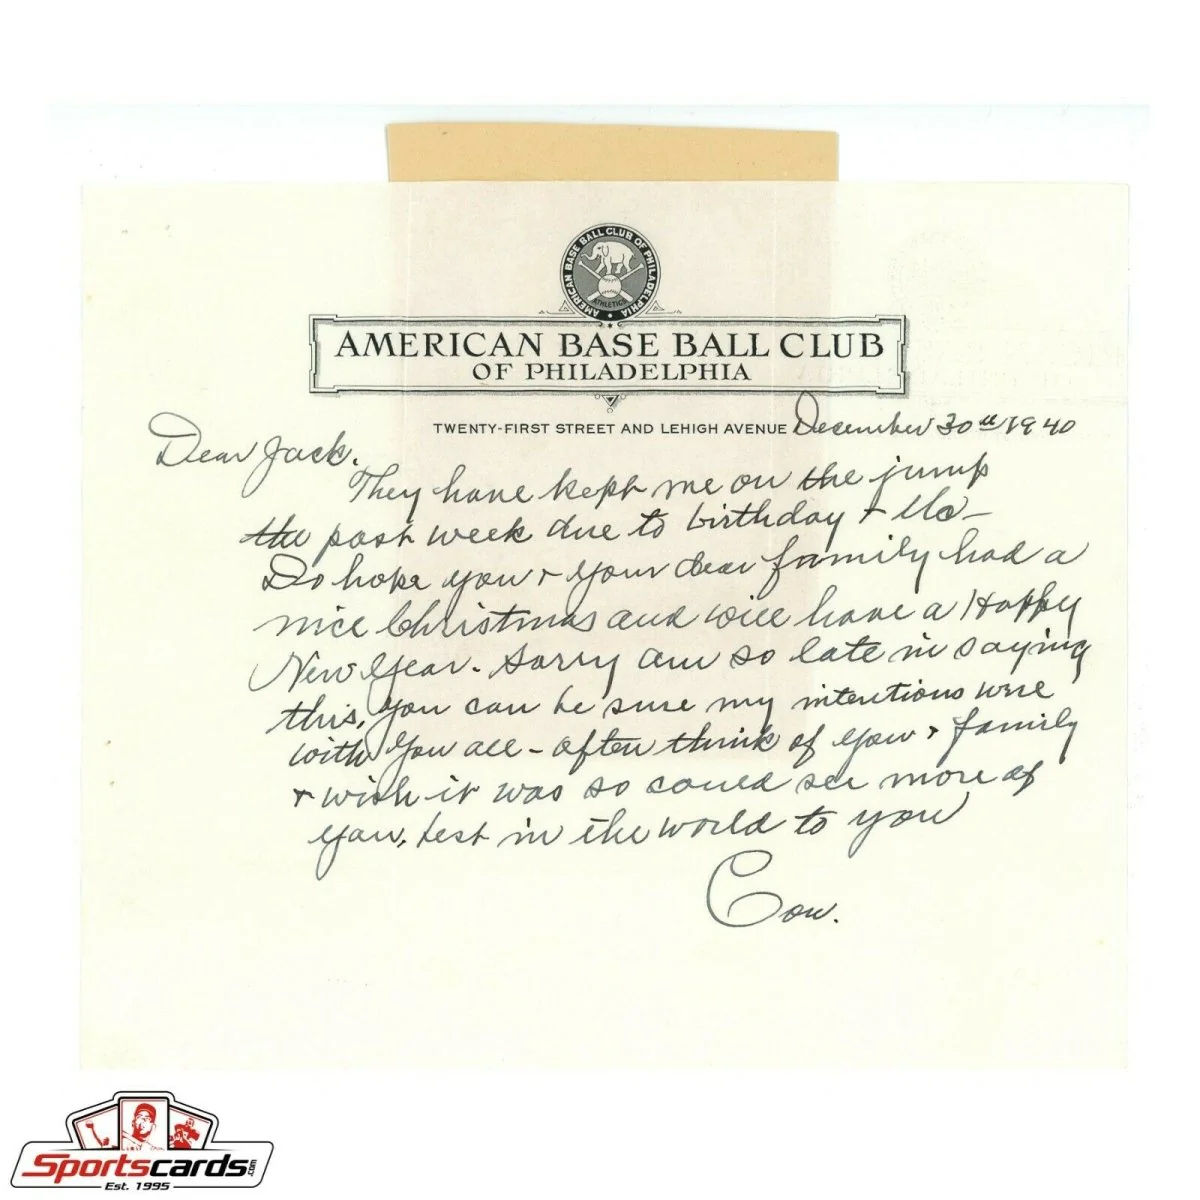 AMERICAN BASE BALL CLUB OF PHILADELPHIA
ATHLETICS
AMERICAN BASE BALL CLUB
OF PHILADELPHIA
TWENTY-FIRST STREET AND LEHIGH AVENUE December 30th 1940
Dear Jack.
They have kept me on the jump
the past week due to birthday +
Do hope you + your dear family had a
nice Christmas and will have a Happy
New Year. Sorry am so late in saying
this, you can be sure my intentions were
with you all - often think of you + family
+ wish it was so could see more of
you, best in the world to you
Con.
Sportscards.com
Est. 1995